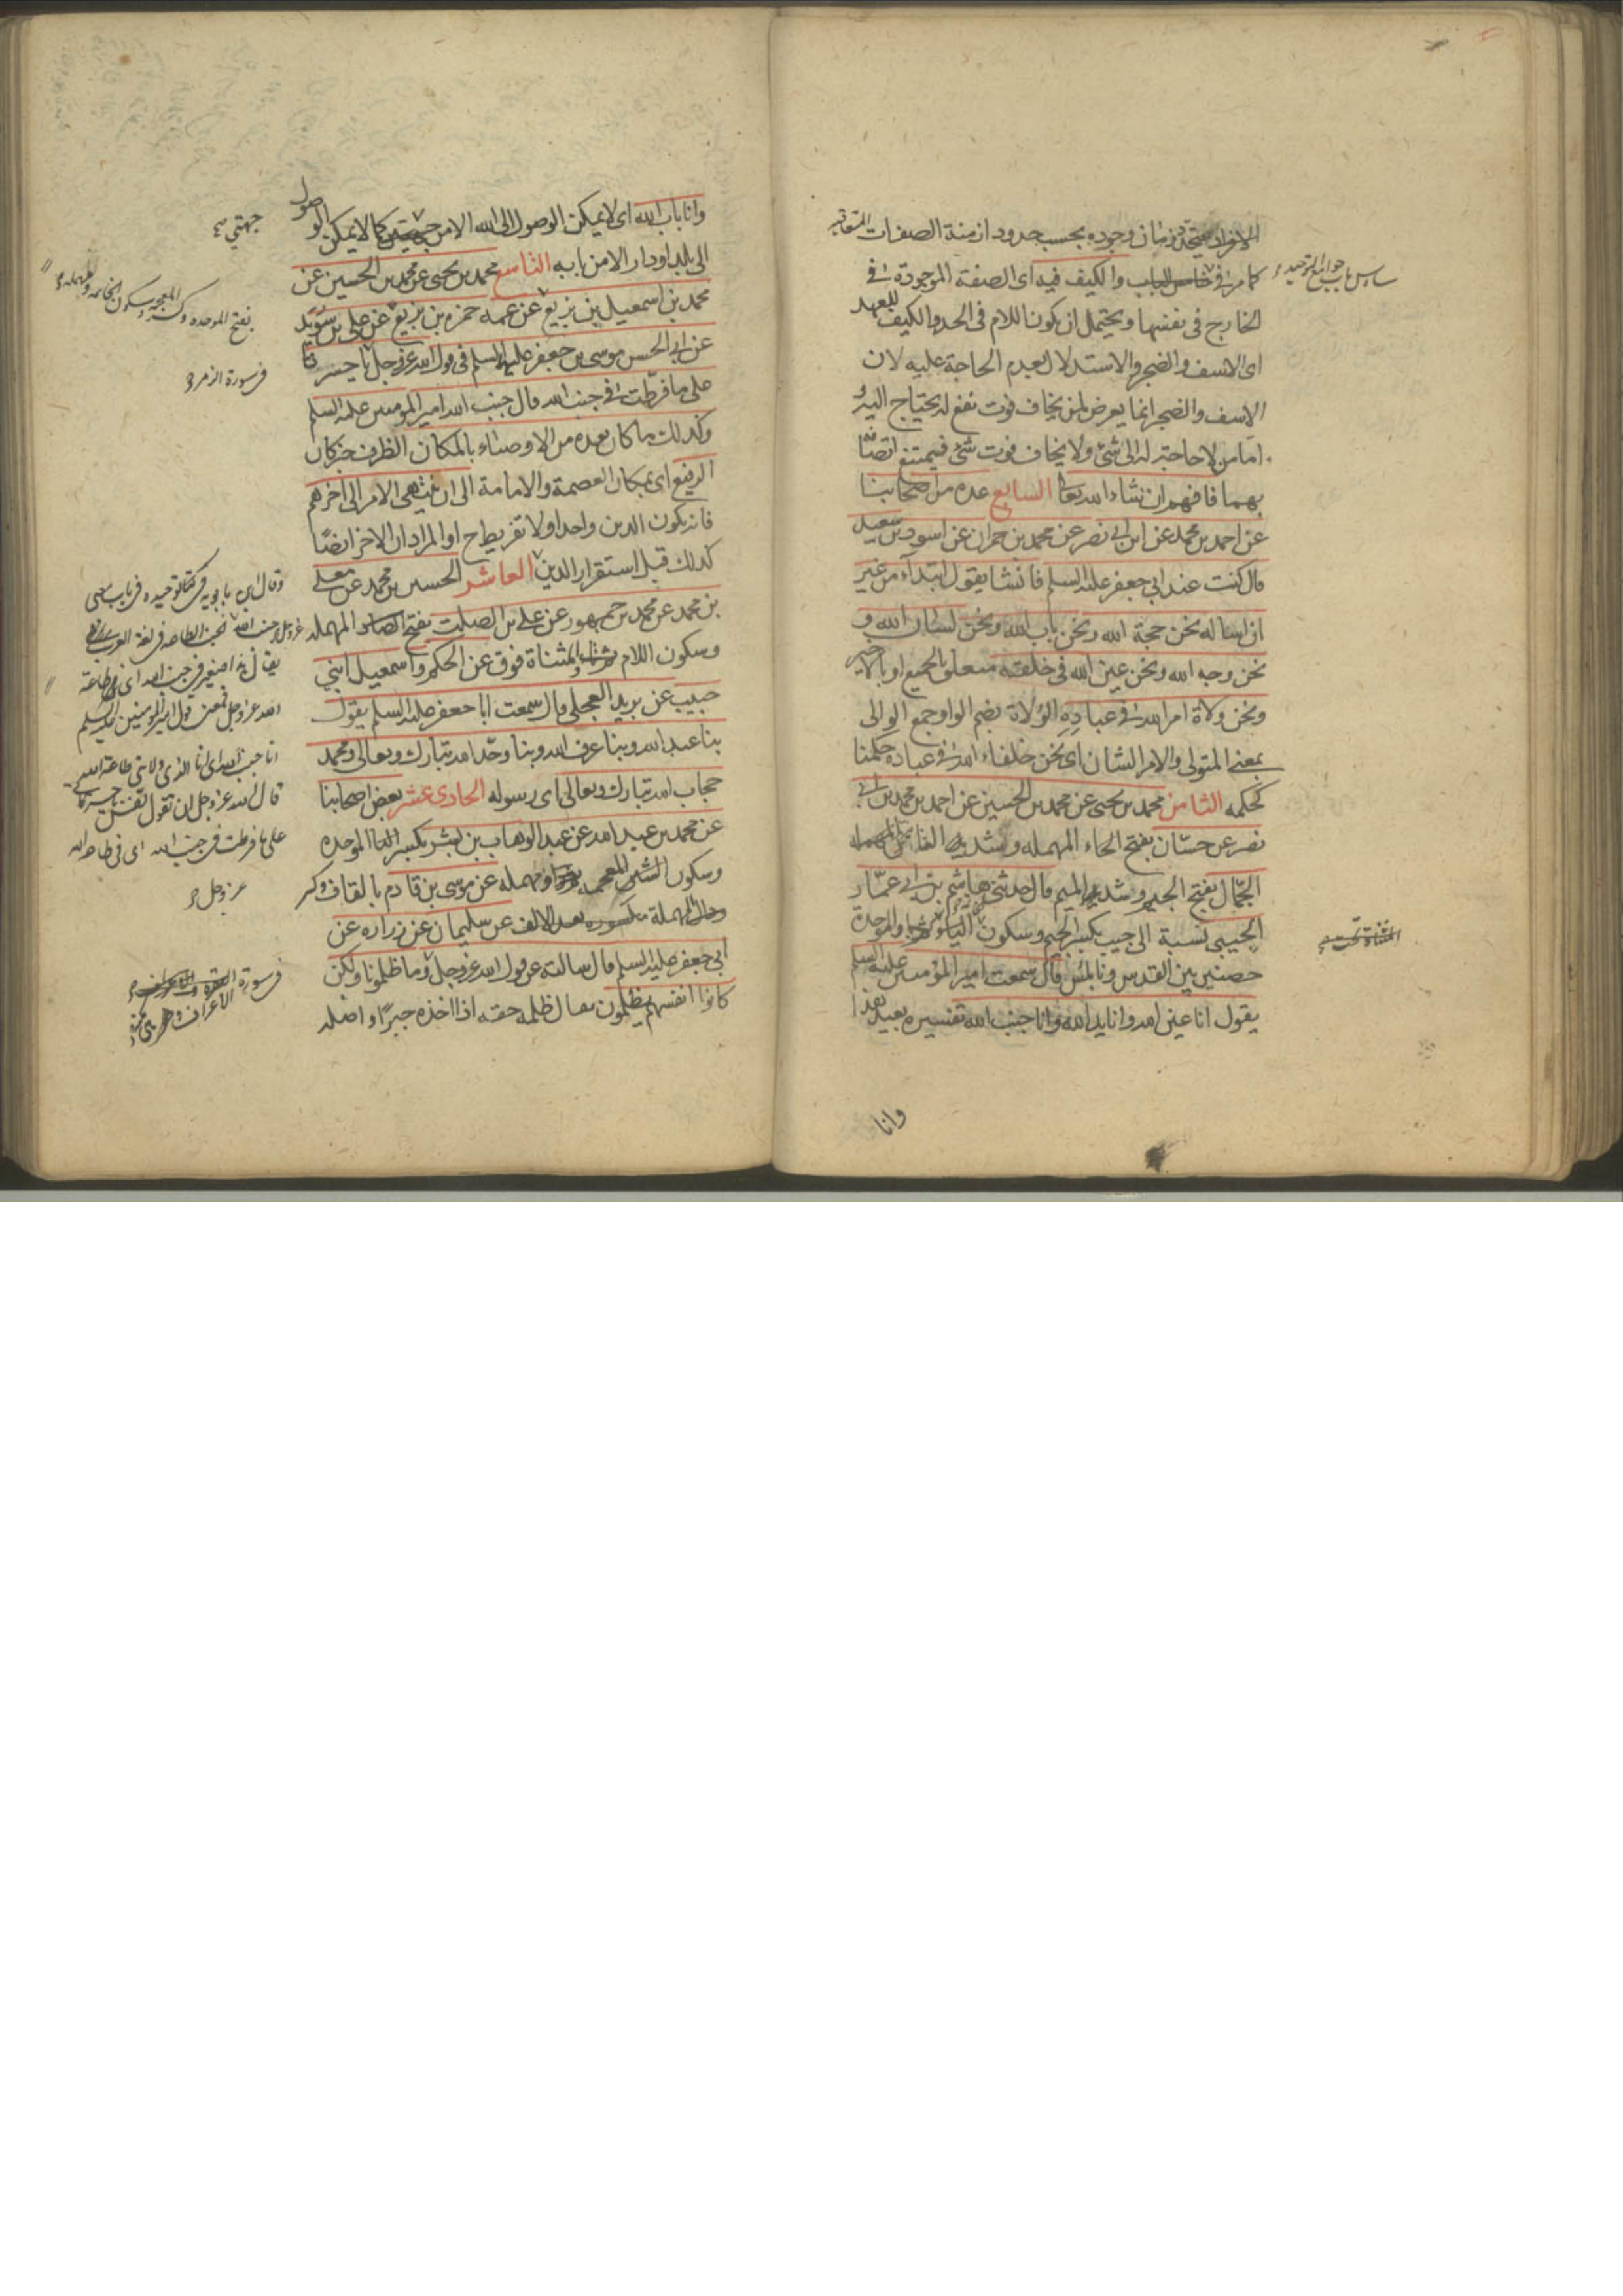 الافراد فيتحد زمان وجوده بحسب حدود ازمنة الصفات المتعاقبة
كما مر في خامس الباب والكيف فيه اى الصفة الموجودة في
سادس باب جوامع التوحيد
الخارج في نفسها ويحتمل ان يكون اللام في الحد والكيف للعهد
اى الاسف والضجر والاستدلال لعدم الحاجة عليه لان
الاسف والضجر انما يعرض لمن يخاف فوت نفع له يحتاج اليه
اما من لا حاجة له الى شئ ولا يخاف فوت شئ فيمتنع اتصافه
بهما فافهم ان شاء الله تعالى السابع عدة من اصحابنا
عن احمد بن محمد عن ابن ابي نصر عن محمد بن حمران عن اسود بن سعيد
قال كنت عند ابي جعفر عليه السلم فانشا يقول ابتداء من غير
ان اساله نحن حجة الله ونحن باب الله ونحن لسان الله و
نحن وجه الله ونحن عين الله في خلقه متعلق بالجميع او بالاخير
ونحن ولاة امر الله في عباده الولاة بضم الواو جمع الوالى
بمعنى المتولى والامر الشان اى نحن خلفاء الله في عباده حكمنا
كحكمه الثامن محمد بن يحيى عن محمد بن الحسين عن احمد بن محمد بن ابي
نصر عن حسّان بفتح الحاء المهمله وتشديد
الجمّال بفتح الجيم وتشديد الميم قال حدثني هاشم بن ابي عمّار
الجنبي نسبة الى جيب بكسر الجيم وسكون الياء والموحدة
المثناة تحت
حصنين بين القدس ونابلس قال سمعت امير المؤمنين عليه السلم
يقول انا عين الله وانا يد الله وانا جنب الله تفسيره بعيد هذا
وانا
وانا باب الله اى لا يمكن الوصول الى الله الا من جهتي كما لا يمكن الوصول
جهتي صح
الى بلد او دار الا من بابه التاسع محمد بن يحيى عن محمد بن الحسين عن
محمد بن اسمعيل بن بزيع عن عمه حمزه بن بزيع عن علي بن سُوَيد
بفتح الموحده وكسر المعجمه وسكون الخاتمه والمهمله
عن ابي الحسن موسى بن جعفر عليه السلم في قول الله عز وجل يا حسرتا
على ما فرّطت في جنب الله قال جنب الله امير المومنين عليه السلم
في سورة الزمر
وكذلك ما كان بعده من الاوصياء بالمكان الظرف خبر كان
الرفيع اى بمكان العصمة والامامة الى ان ينتهى الامر الى اخرهم
فانه يكون الدين واحدا ولا تفريط ح او المراد ان الاخر ايضًا
كذلك قبل استقرار الدين العاشر الحسين بن محمد عن معلى
بن محمد عن محمد بن جمهور عن علي بن الصلت بفتح الصاد المهمله
وسكون اللام والمثناة فوق عن الحكم واسمعيل ابني
حبيب عن بريد العجلي قال سمعت ابا جعفر عليه السلم يقول
بنا عبد الله وبنا عرف الله وبنا وحّد الله تبارك وتعالى ومحمد
حجاب الله تبارك وتعالى اى رسوله الحادى عشر بعض اصحابنا
عن محمد بن عبد الله عن عبد الوهاب بن بشر بكسر الباء الموحده
وسكون الشين المعجمه ومهمله عن موسى بن قادم بالقاف وكسر
ودال مهملة مكسوره بعد الالف عن سليمان عن زراره عن
ابي جعفر عليه السلم قال سالته عن قول الله عز وجل وما ظلمونا ولكن
كانوا انفسهم يظلمون يقال ظلمه حقه اذا اخذه جبرًا واصله
وقال ابن بابويه في كتاب توحيده في باب معنى
عز وجل جنب الله الجنب الطاعه في لغة العرب
يقال هذا صغير في جنب الله اى في طاعة
الله عز وجل فمعنى قول امير المؤمنين عليه السلم
انا جنب الله اى انا الذى ولايتي طاعة الله
قال الله عز وجل ان تقول نفس يا حسرتا
على ما فرطت في جنب الله اى في طاعة الله
عز وجل
في سورة البقرة
الاعراف